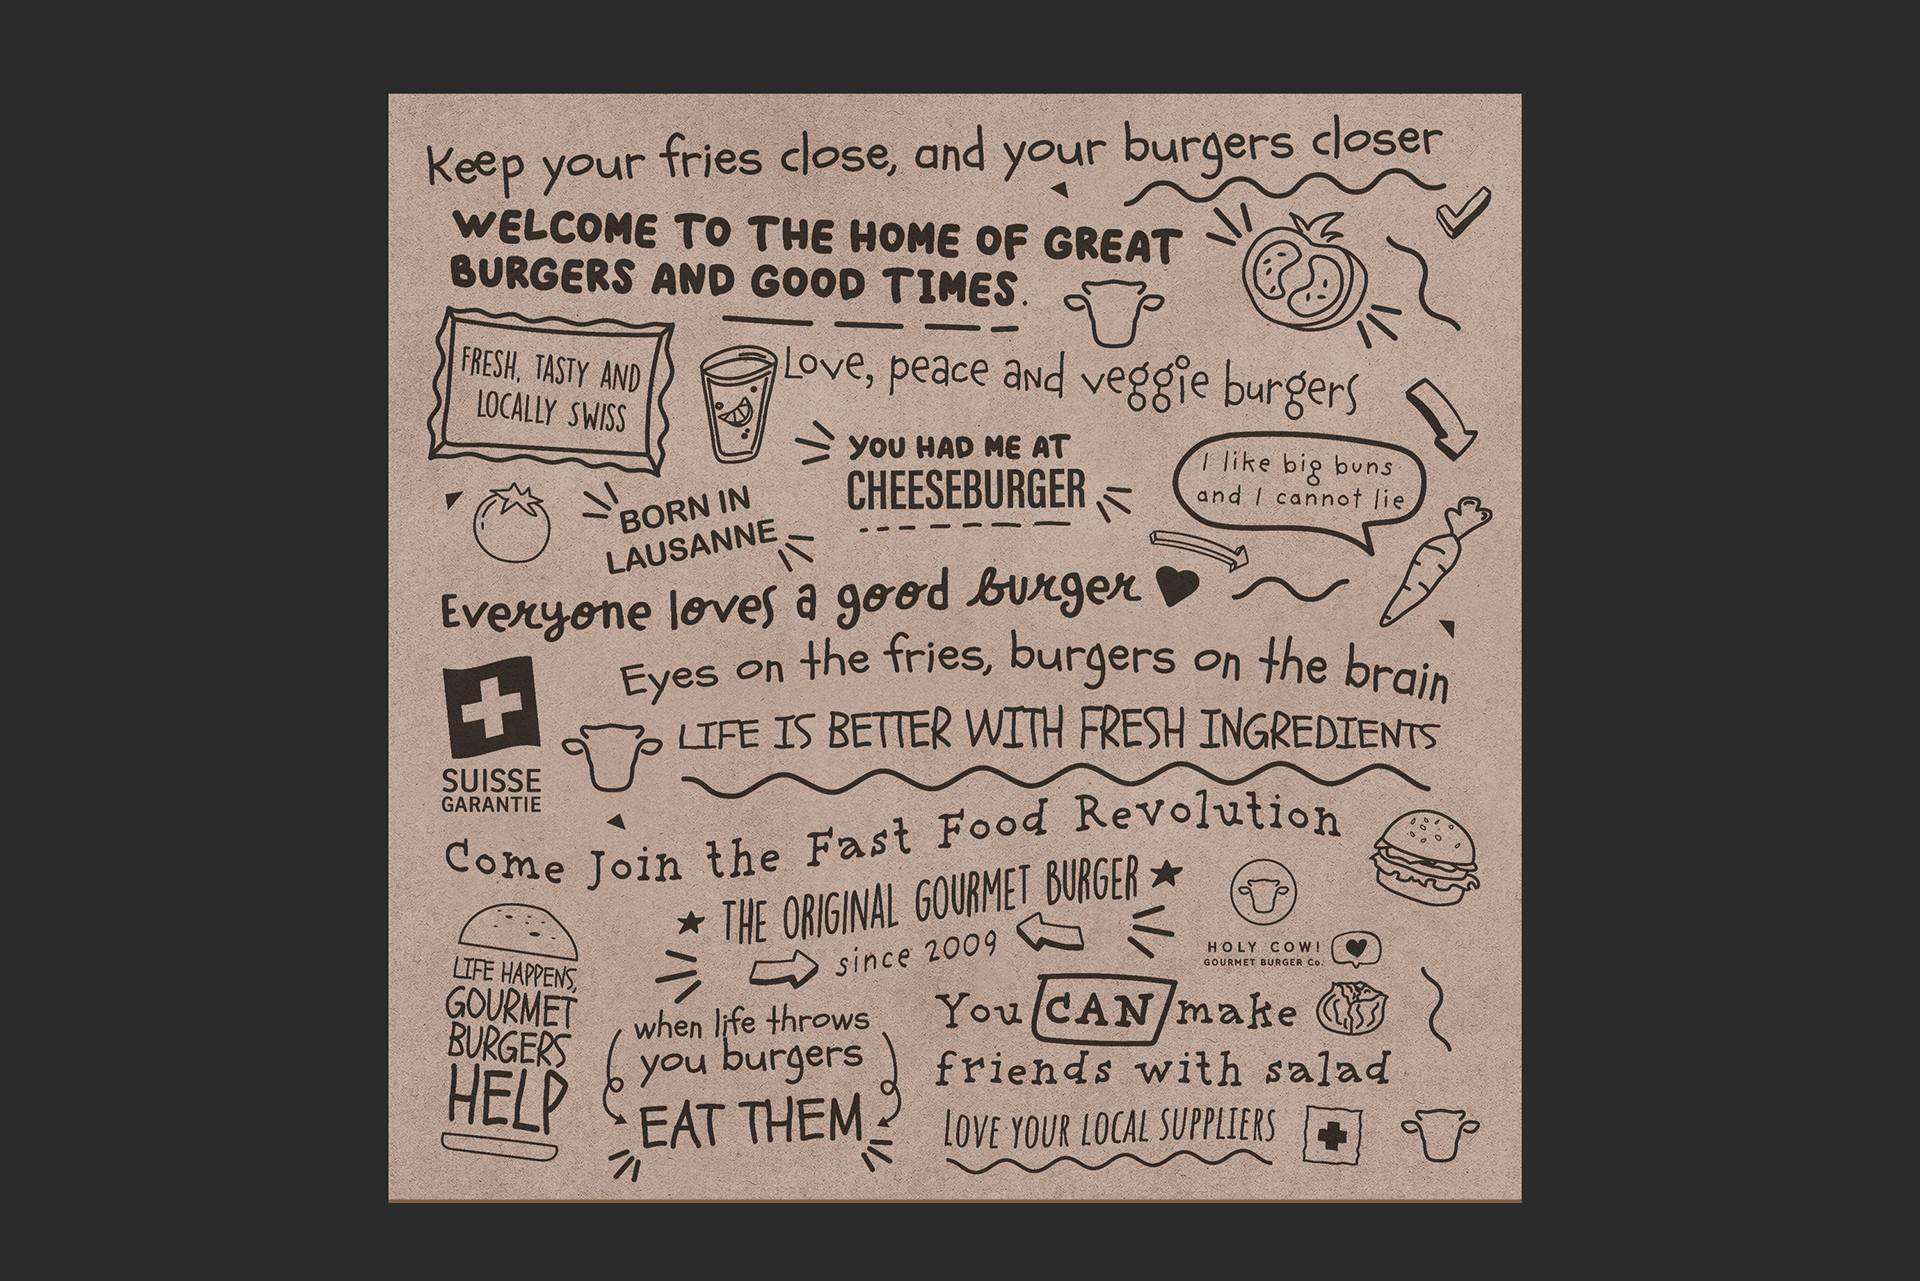 Keep your fries close, and your burgers closer
WELCOME TO THE HOME OF GREAT
BURGERS AND GOOD TIMES.
FRESH, TASTY AND
LOCALLY SWISS
Love, peace and veggie burgers
YOU HAD ME AT
CHEESEBURGER
I like big buns
and I cannot lie
BORN IN
LAUSANNE
Everyone loves a good burger
Eyes on the fries, burgers on the brain
SUISSE
GARANTIE
LIFE IS BETTER WITH FRESH INGREDIENTS
Come Join the Fast Food Revolution
THE ORIGINAL GOURMET BURGER
since 2009
HOLY COW!
GOURMET BURGER Co.
LIFE HAPPENS,
GOURMET
BURGERS
HELP
when life throws
you burgers
EAT THEM
You CAN make
friends with salad
LOVE YOUR LOCAL SUPPLIERS